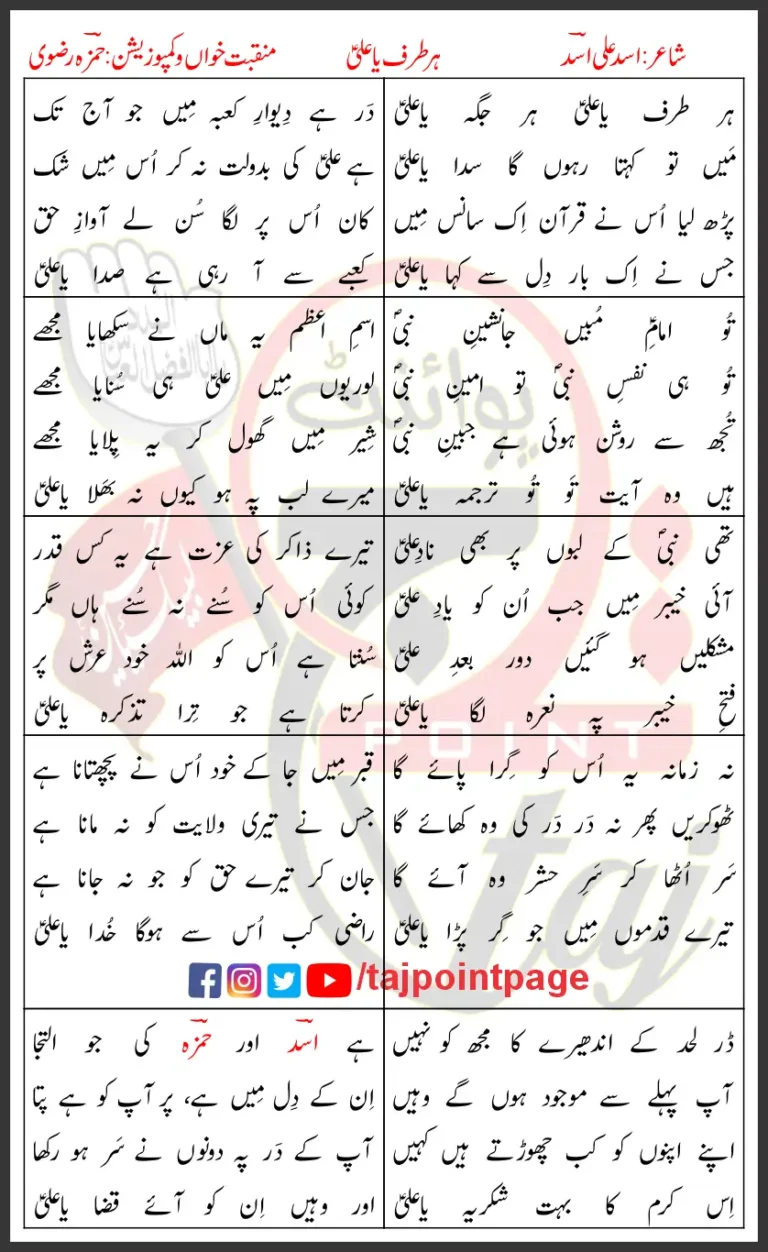 شاعر: اسد علی اسدؔ
ہر طرف یا علیؑ
منقبت خواں و کمپوزیشن: حمزہؔ رضوی
ہر طرف یاعلیؑ ہر جگہ یاعلیؑ
مَیں تو کہتا رہوں گا سدا یاعلیؑ
پڑھ لیا اُس نے قرآن اِک سانس مِیں
جس نے اِک بار دِل سے کہا یاعلیؑ
دَر ہے دِیوارِ کعبہ مِیں جو آج تک
ہے علیؑ کی بدولت نہ کر اُس مِیں شک
کان اُس پر لگا سُن لے آوازِ حق
کعبے سے آ رہی ہے صدا یاعلیؑ
تُو امامِؑ مُبیں جانشینِ نبیؐ
تُو ہی نفسِ نبیؐ تو امینِ نبیؐ
تُجھ سے روشن ہوئی ہے جبینِ نبیؐ
ہیں وہ آیت تَو تُو ترجمہ یاعلیؑ
اسمِ اعظم یہ ماں نے سکھایا مجھے
لوریوں مِیں علیؑ ہی سُنایا مجھے
شِیر مِیں گھول کر یہ پِلایا مجھے
میرے لب پہ ہو کیوں نہ بَھلا یاعلیؑ
تھی نبیؐ کے لبوں پر بھی نادِعلیؑ
آئی خیبر مِیں جب اُن کو یادِ علیؑ
مشکلیں ہو گئیں دور بعدِ علیؑ
فتحِ خیبر پہ نعرہ لگا یاعلیؑ
تیرے ذاکر کی عزت ہے یہ کس قدر
کوئی اُس کو سُنے نہ سُنے ہاں مگر
سُنتا ہے اُس کو اللہ خود عرش پر
کرتا ہے جو تِرا تذکرہ یاعلیؑ
نہ زمانہ یہ اُس کو گِرا پائے گا
ٹھوکریں پھر نہ دَر دَر کی وہ کھائے گا
سَر اُٹھا کر سَرِ حشر وہ آئے گا
تیرے قدموں مِیں جو گِر پڑا یاعلیؑ
قبر مِیں جا کے خود اُس نے پچھتانا ہے
جس نے تیری ولایت کو نہ مانا ہے
جان کر تیرے حق کو جو نہ جانا ہے
راضی کب اُس سے ہوگا خُدا یاعلیؑ
/tajpointpage
ڈر لحد کے اندھیرے کا مجھ کو نہیں
آپ پہلے سے موجود ہوں گے وہیں
اپنے اپنوں کو کب چھوڑتے ہیں کہیں
اِس کرم کا بہت شکریہ یاعلیؑ
ہے اسدؔ اور حمزہؔ کی جو التجا
اِن کے دِل مِیں ہے، پر آپ کو ہے پتا
آپ کے دَر پہ دونوں نے سَر ہو رکھا
اور وہیں اِن کو آئے قضا یاعلیؑ
پوائنٹ
تاج
POINT
taj